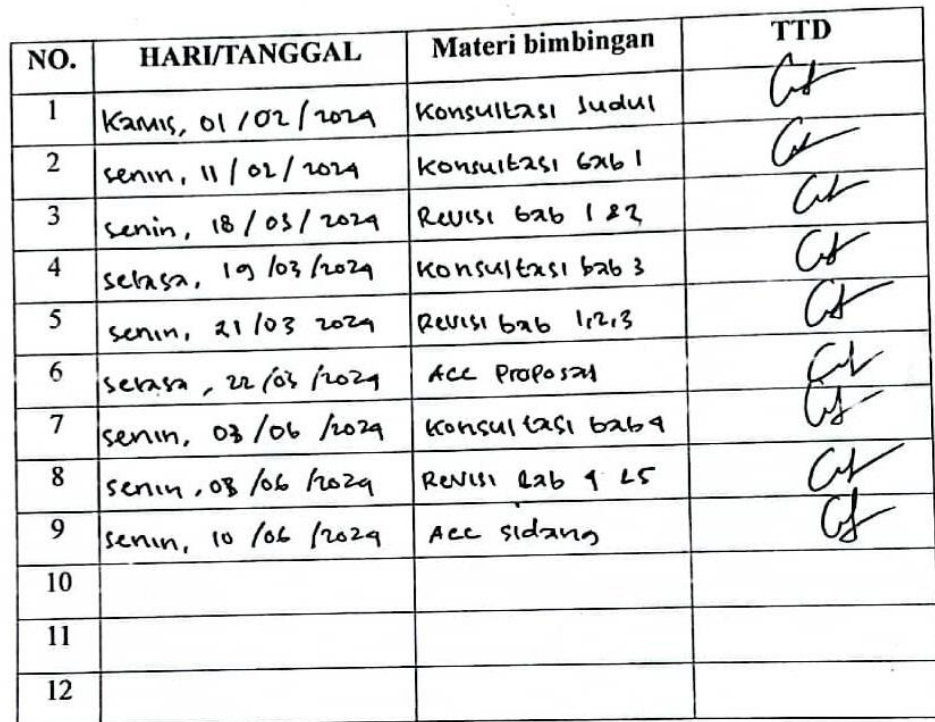 NO. HARI/TANGGAL Materi bimbingan TTD
1 Kamis, 01/02/2024 Konsultasi Judul
2 senin, 11/02/2024 Konsultasi bab 1
3 senin, 18/03/2024 Revisi bab 1 & 2
4 selasa, 19/03/2024 Konsultasi bab 3
5 senin, 21/03 2024 Revisi bab 1,2,3
6 selasa, 22/03/2024 Acc Proposal
7 senin, 03/06/2024 Konsultasi bab 4
8 senin, 08/06/2024 Revisi bab 4 & 5
9 senin, 10/06/2024 Acc Sidang
10
11
12